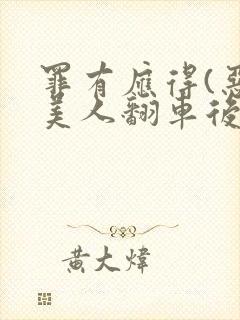 罪有應得(惡
美人翻車後
黃大煒